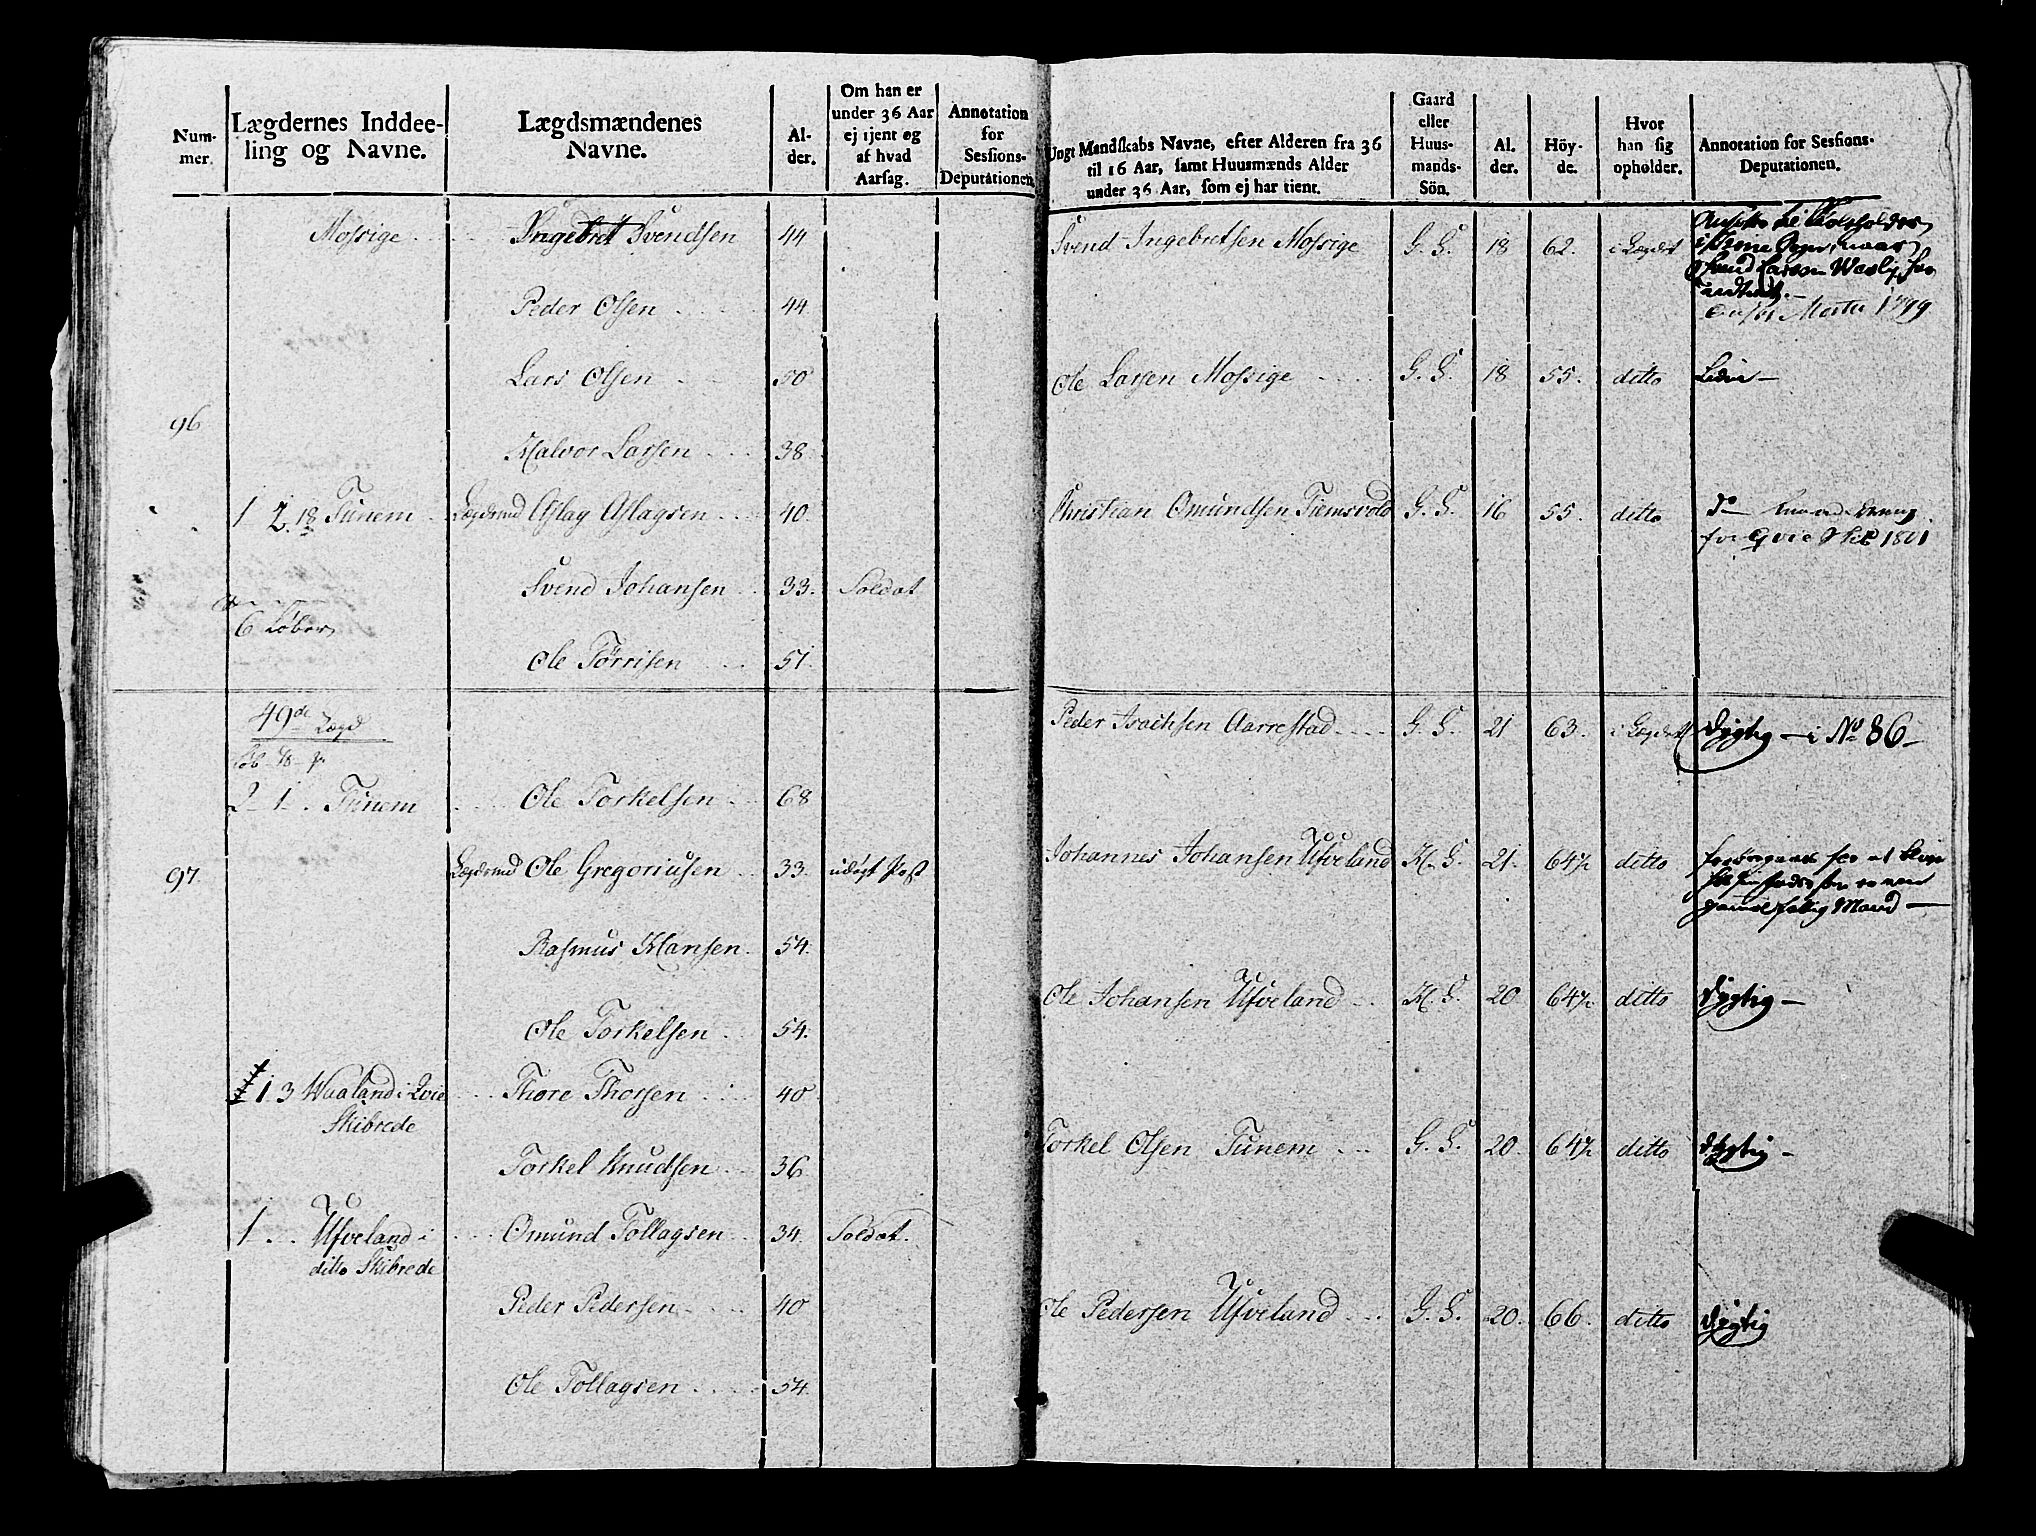 Num-
mer.
Lægdernes Inddee-
ling og Navne.
Lægdsmændenes
Navne.
Al-
der.
Om han er
under 36 Aar
ej tjent og
af hvad
Aarsag.
Annotation
for
Sessions-
Deputationen.
Ungt Mandskabs Navne, efter Alderen fra 36
til 16 Aar, samt Huusmænds Alder
under 36 Aar, som ej har tient.
Gaard
eller
Huus-
mands-
Sön.
Al.
der.
Höy-
de.
Hvor
han sig
opholder.
Annotation for Sessions-
Deputationen.
Mossige Ingebret Svendsen 44
Peder Olsen 44
Lars Olsen 50
96
Halvor Larsen 38
1 2 18 Tunem Lægdsmd Aslag Aslagsen 40
Svend Johansen 33 Soldat
6 Løber
Ole Tørrisen 51
49de Lægd
2 1 Tunem Ole Torkelsen 68
97 Lægdsmd Ole Gregoriusen 33 udögt Past
Rasmus Hansen 54
Ole Torkelsen 54
1 3 Waaland i Qvie Thore Thorsen 40
Skibrede
Torkel Knudsen 36
1 Ufveland i Omund Tollagsen 34 Soldat
ditto Skibrede
Peder Pedersen 40
Ole Tollagsen 54
Svend Ingebretsen Mossige G. S. 18 62. i Lægdet
Svend Larsen
Martii 1799
Ole Larsen Mossige G. S. 18 55. ditto
Christian Omundsen Tiemsvold G. S. 16 55. ditto
for Qvie 1801
Peder Isachsen Aarrestad G. S. 21 63. i Lægdet Dygtig — i No 86 —
Johannes Johansen Ufveland H. S. 21. 64½ ditto
Mand —
Ole Johansen Ufveland H. S. 20 64½ ditto Dygtig —
Torkel Olsen Tunem G. S. 20. 64½ ditto dygtig —
Ole Pedersen Ufveland G. S. 20. 66. ditto Dygtig